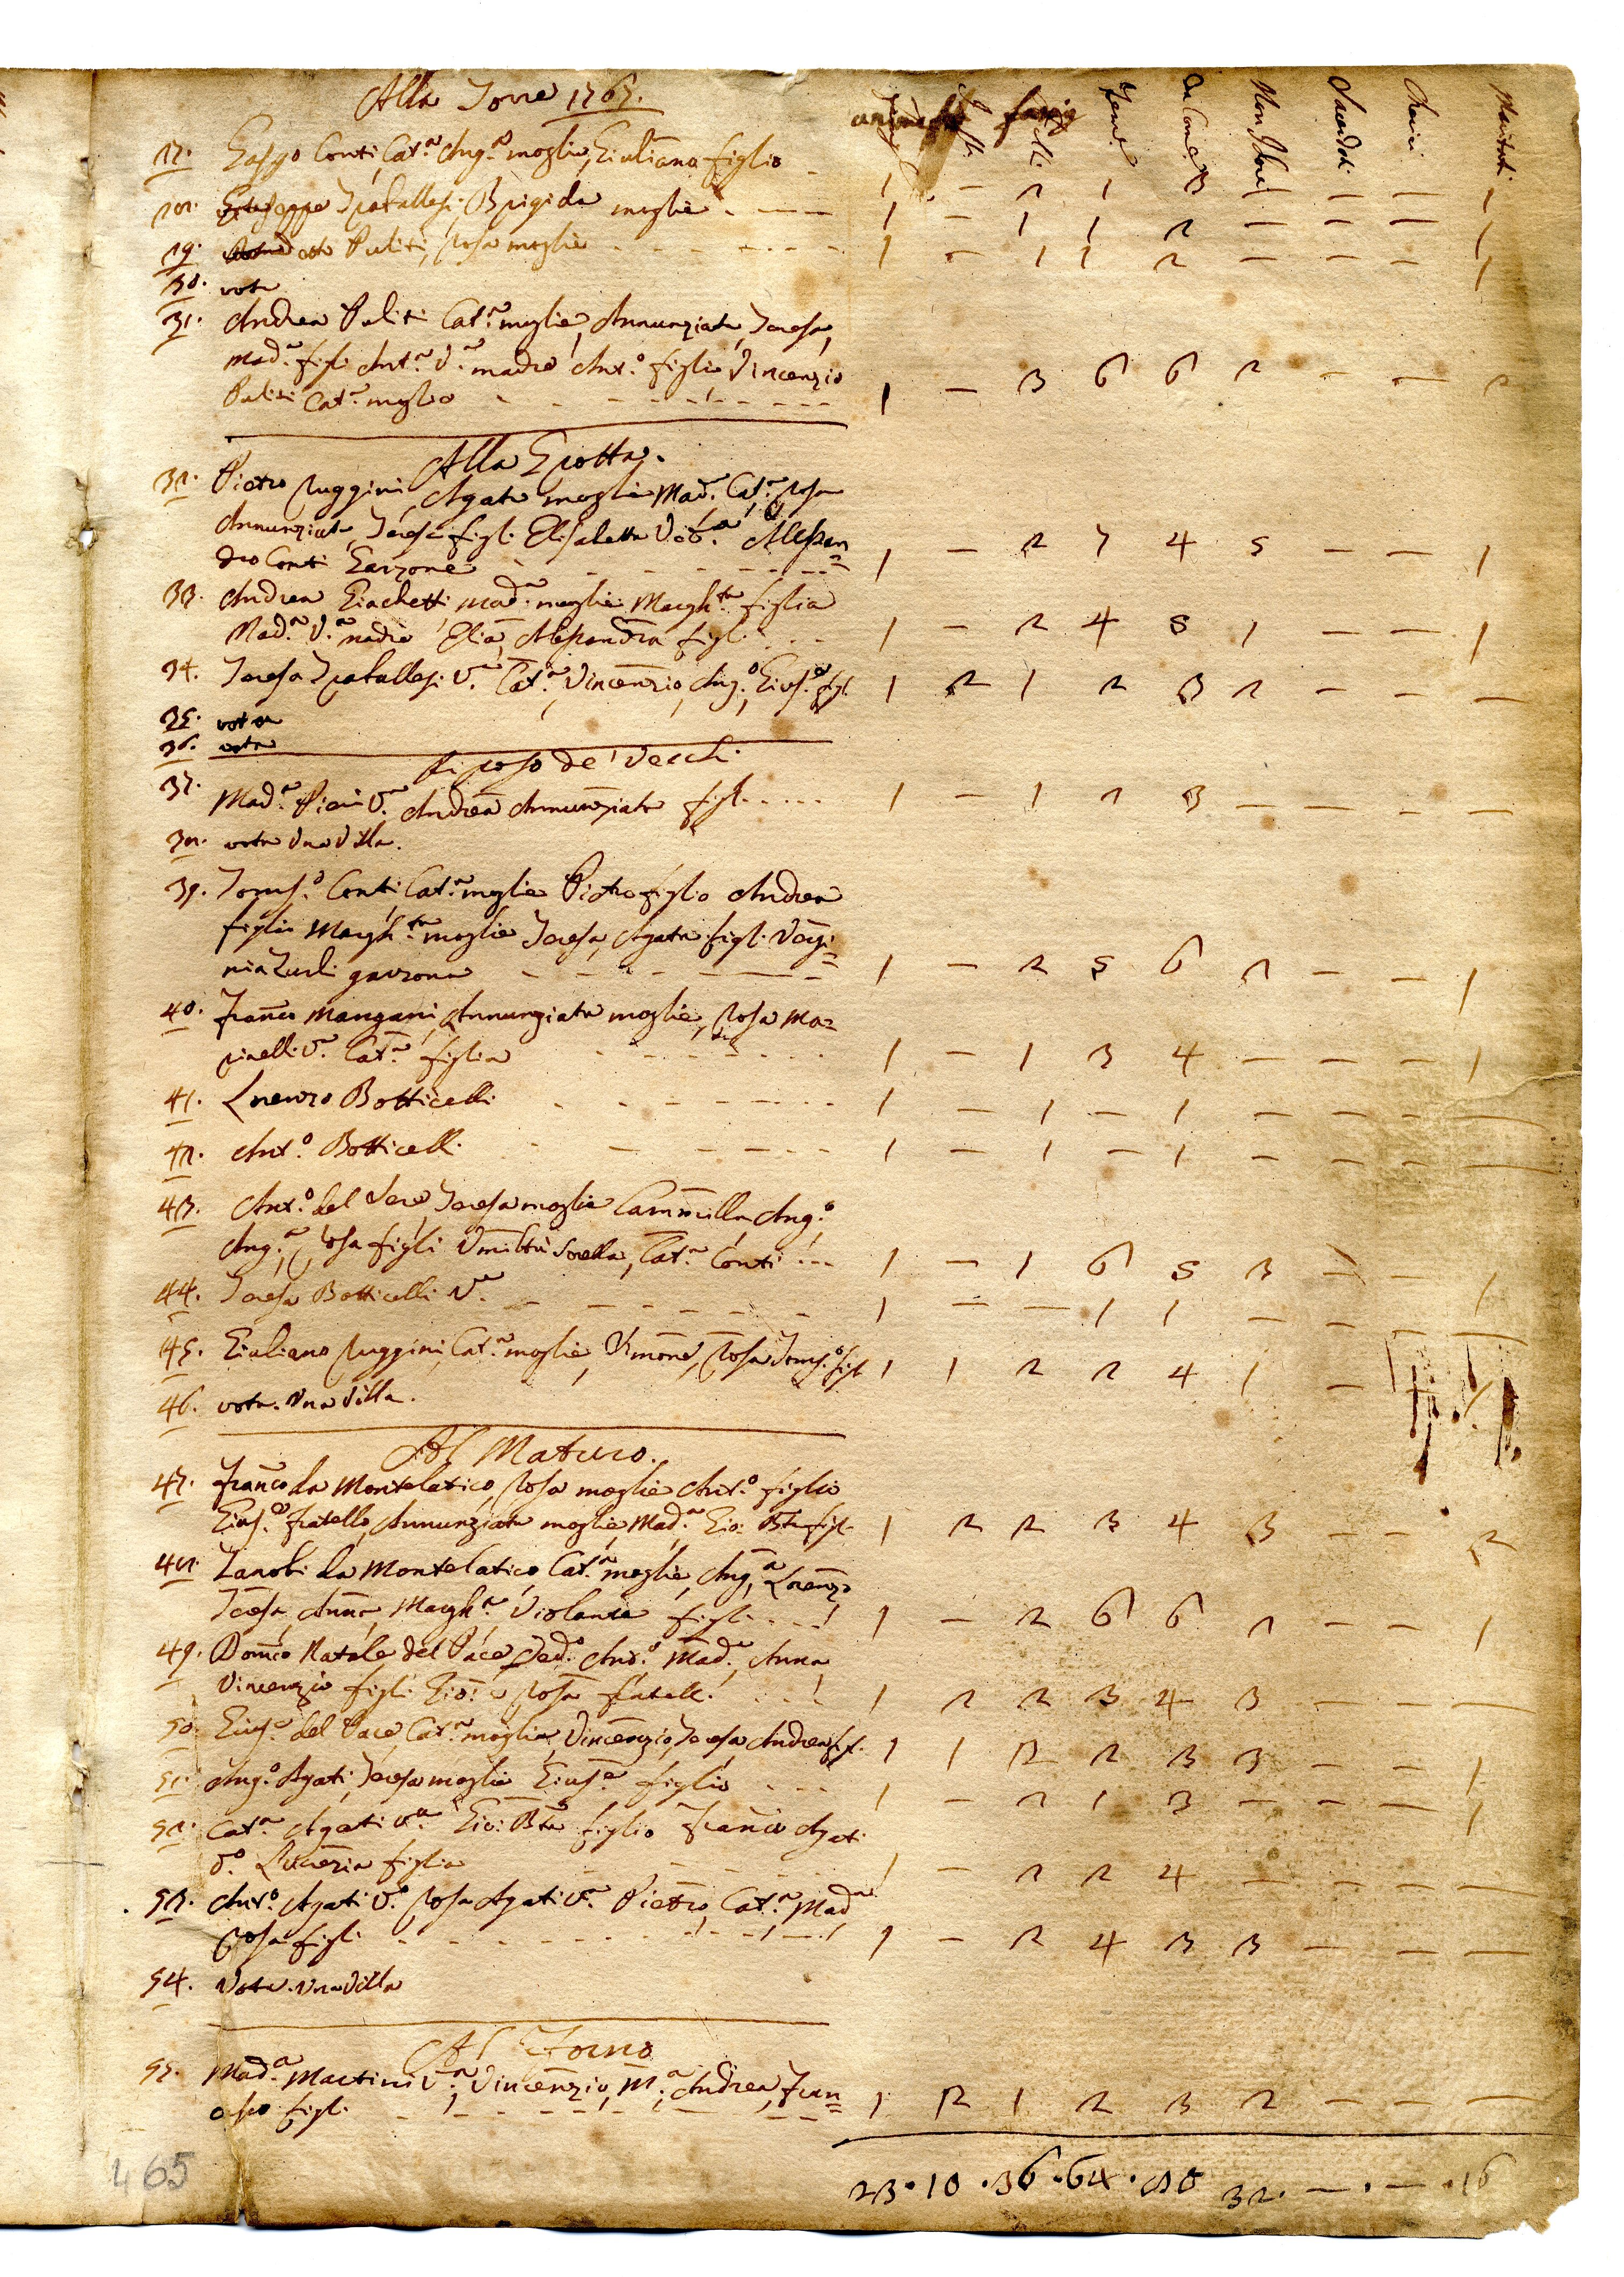 Alla Torre 1767.
27. Gaspo Conti, Cat.a Ang.a moglie, Giuliano figlio
28. Giuseppe Trafallesi Brigida moglie - 1 - 1 1 2 - - - 1
29. Puliti, Rosa moglie - 1 - 1 1 2 - - - 1
30. vota
31. Andrea Puliti Cat.a moglie, Annunziata, Teresa,
Mad.a figli Ant.a V.a madre Ant.o figlio, Vincenzio
Puliti Cat.a moglie - 1 - 3 6 6 2 - - 2
Alla Grotta.
32. Pietro Ruggini, Agata moglie Mad.a Cat.a Rosa
Annunziata, Teresa figli Elisabetta Alessan=
dro Conti Garzone - 1 - 2 7 4 5 - - 1
33. Andrea Giachetti Mad.a moglie Margh.ta figlia
Mad.a V.a madre Elia, Alessandra figli - 1 - 2 4 5 1 - - 1
34. Teresa Trafallesi V.a Cat.a Vincenzio, Ang.o Gius.e figli 1 2 1 2 3 2 - - -
35. vota
36. vota
Riposo de' Vecchi
37. Mad.a Pieri V.a Andrea Annunziata figli 1 - 1 2 3 - - - -
38. vota Una Villa.
39. Toms.o Conti, Cat.a moglie Pietro figlio Andrea
figlio Margh.ta moglie Teresa, Agata figli Virgi=
nia Zurli garzona - 1 - 2 5 6 2 - - 1
40. Franco Mangani, Annunziata moglie, Rosa Ma=
rinelli V.a Cat.a figlia - 1 - 1 3 4 - - - 1
41. Lorenzo Botticelli - 1 - 1 - 1 - - - -
42. Ant.o Botticelli - 1 - 1 - 1 - - - -
43. Ant.o del Sere, Teresa moglie Cammilla, Ang.o
Ang.a, Rosa figli Umiltà Sorella, Cat.a Conti - 1 - 1 6 5 3 - - 1
44. Teresa Botticelli V.a - 1 - - 1 1 - - - -
45. Giuliano Ruggini, Cat.a moglie, Simone, Rosa Toms.o figli 1 1 2 2 4 1 - - 1
46. vota. Una Villa.
Al Maturo.
47. Franco da Montelatico, Rosa moglie Ant.o figlio
Gius.e fratello, Annunziata moglie, Mad.a Gio: Bta figli 1 2 2 3 4 3 - - 2
48. Zanobi da Montelatico Cat.a moglie, Ang.a Lorenzo
Teresa, Anna, Margh.a Violante figli - 1 - 2 6 6 2 - - 1
49. Domco Natale del Pace Ant.o Mad.a Anna
Vincenzio figli Gio: e Rosa fratelli 1 2 2 3 4 3 - - -
50. Gius.e del Pace, Cat.a moglie, Vincenzio, Teresa Andrea figli 1 1 2 2 3 3 - - 1
51. Ang.o Agati, Teresa moglie Gius.e figlio - 1 - 2 1 3 - - - 1
52. Cat.a Agati V.a Gio: Bta figlio Franco Agati
V.o Lucrezia figlia 1 - 2 2 4 - - - -
53. Ant.o Agati V.o Rosa Agati V.a Pietro, Cat.a Mad.a
Rosa figli - 1 - 2 4 3 3 - - -
54. Vota. Una Villa
Al Forno
55. Mad.a Martini V.a, Vincenzio, M.a, Andrea, Fran=
cesco figli - 1 2 1 2 3 2 - - -
23 . 10 . 36 . 64 . 80 32 . - . - . 16
465